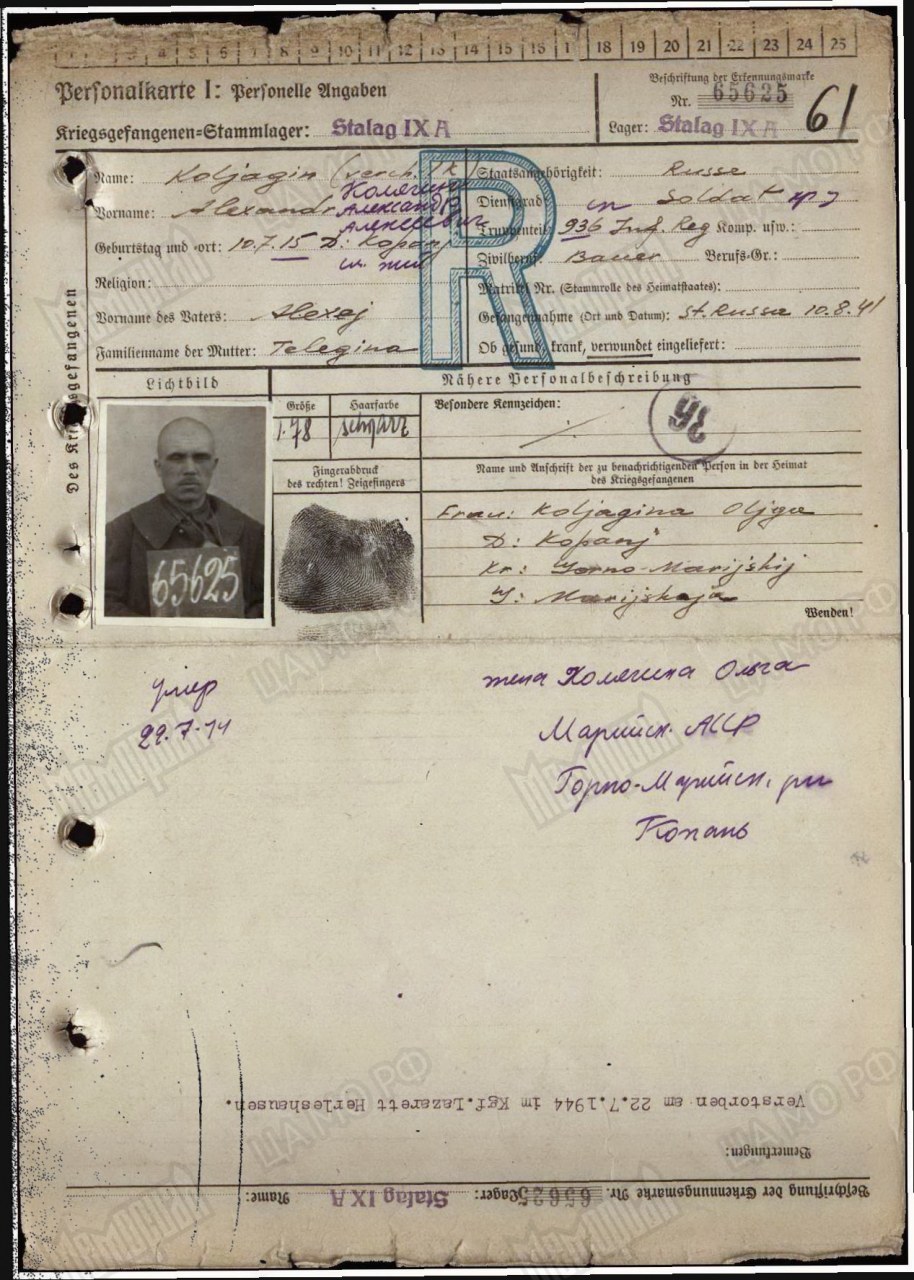 1 2 3 4 5 6 7 8 9 10 11 12 13 14 15 16 1 18 19 20 21 22 23 24 25
Personalkarte I: Personelle Angaben
Kriegsgefangenen-Stammlager: Stalag IX A
Beschriftung der Erkennungsmarke
Nr. 65625
Lager: Stalag IX A
61
R
Des Kriegsgefangenen
Name: Koljagin
Колягин
Vorname: Alexandr
Александр
Алексеевич
Geburtstag und -ort: 10.7.15 D: Kopanj
Religion:
Vorname des Vaters: Alexej
Familienname der Mutter: Telegina
Staatsangehörigkeit: Russe
Dienstgrad: Soldat
Truppenteil: 936 Inf. Reg Komp. usw.:
Zivilberuf: Bauer Berufs-Gr.:
Matrikel Nr. (Stammrolle des Heimatstaates):
Gefangennahme (Ort und Datum): St. Russa 10.8.41
Ob gesund, krank, verwundet eingeliefert:
Lichtbild
Nähere Personalbeschreibung
Größe
1.78
Haarfarbe
schwarz
Besondere Kennzeichen:
36
Fingerabdruck
des rechten! Zeigefingers
65625
Name und Anschrift der zu benachrichtigenden Person in der Heimat
des Kriegsgefangenen
Frau: Koljagina Oljga
D: Kopanj
Kr: Gorno-Marijskij
G: Marijskaja
Wenden!
умер
22.7.44
жена Колягина Ольга
Марийск. АССР
Горно-Марийск. рн
Копань
Verstorben am 22.7.1944 im Kgf.Lazarett Herleshausen.
Bemerkungen:
Beschriftung der Erkennungsmarke Nr. 65625 Lager: Stalag IX A Name:
Мемориал
ЦАМО РФ